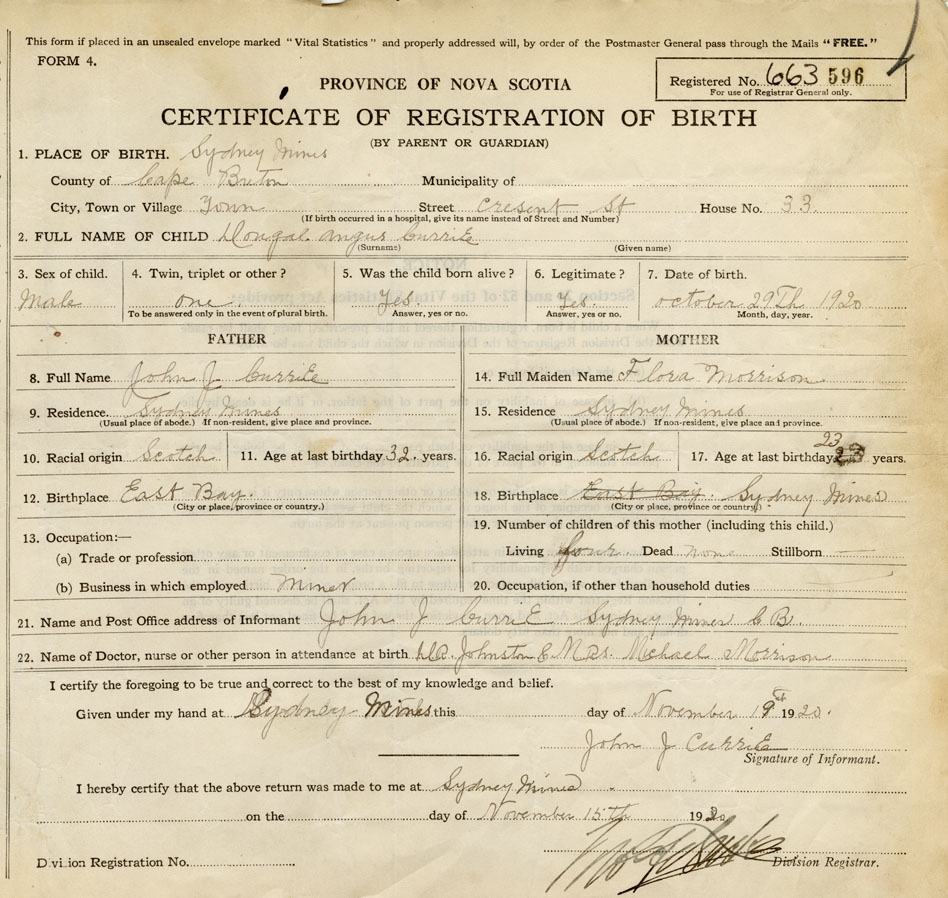 This form if placed in an unsealed envelope marked "Vital Statistics" and properly addressed will, by order of the Postmaster General pass through the Mails "FREE."
FORM 4.
Registered No. 663 596
For use of Registrar General only.
PROVINCE OF NOVA SCOTIA
CERTIFICATE OF REGISTRATION OF BIRTH
(BY PARENT OR GUARDIAN)
1. PLACE OF BIRTH. Sydney Mines
County of Cape Breton Municipality of
City, Town or Village Town Street Cresent St House No. 33
(If birth occurred in a hospital, give its name instead of Street and Number)
2. FULL NAME OF CHILD Dougal Angus CurriE
(Surname) (Given name)
3. Sex of child. 4. Twin, triplet or other? 5. Was the child born alive? 6. Legitimate? 7. Date of birth.
Male one Yes Yes. october 29Th 1920
To be answered only in the event of plural birth. Answer, yes or no. Answer, yes or no. Month, day, year.
FATHER MOTHER
8. Full Name John J CurriE 14. Full Maiden Name Flora Morrison
9. Residence. Sydney Mines 15. Residence Sydney Mines
(Usual place of abode.) If non-resident, give place and province. (Usual place of abode.) If non-resident, give place and province.
10. Racial origin Scotch 11. Age at last birthday 32. years. 16. Racial origin Scotch 17. Age at last birthday 23 years.
12. Birthplace East Bay. 18. Birthplace East Bay. Sydney Mines
(City or place, province or country.) (City or place, province or country.)
13. Occupation:— 19. Number of children of this mother (including this child.)
(a) Trade or profession Living four. Dead none Stillborn —
(b) Business in which employed Miner 20. Occupation, if other than household duties
21. Name and Post Office address of Informant John J CurriE Sydney Mines C B.
22. Name of Doctor, nurse or other person in attendance at birth Johnston Michael Morrison
I certify the foregoing to be true and correct to the best of my knowledge and belief.
Given under my hand at Sydney Mines this day of November 1920.
John J CurriE
Signature of Informant.
I hereby certify that the above return was made to me at Sydney Mines
on the day of November 15th 1920
Division Registration No. Division Registrar.